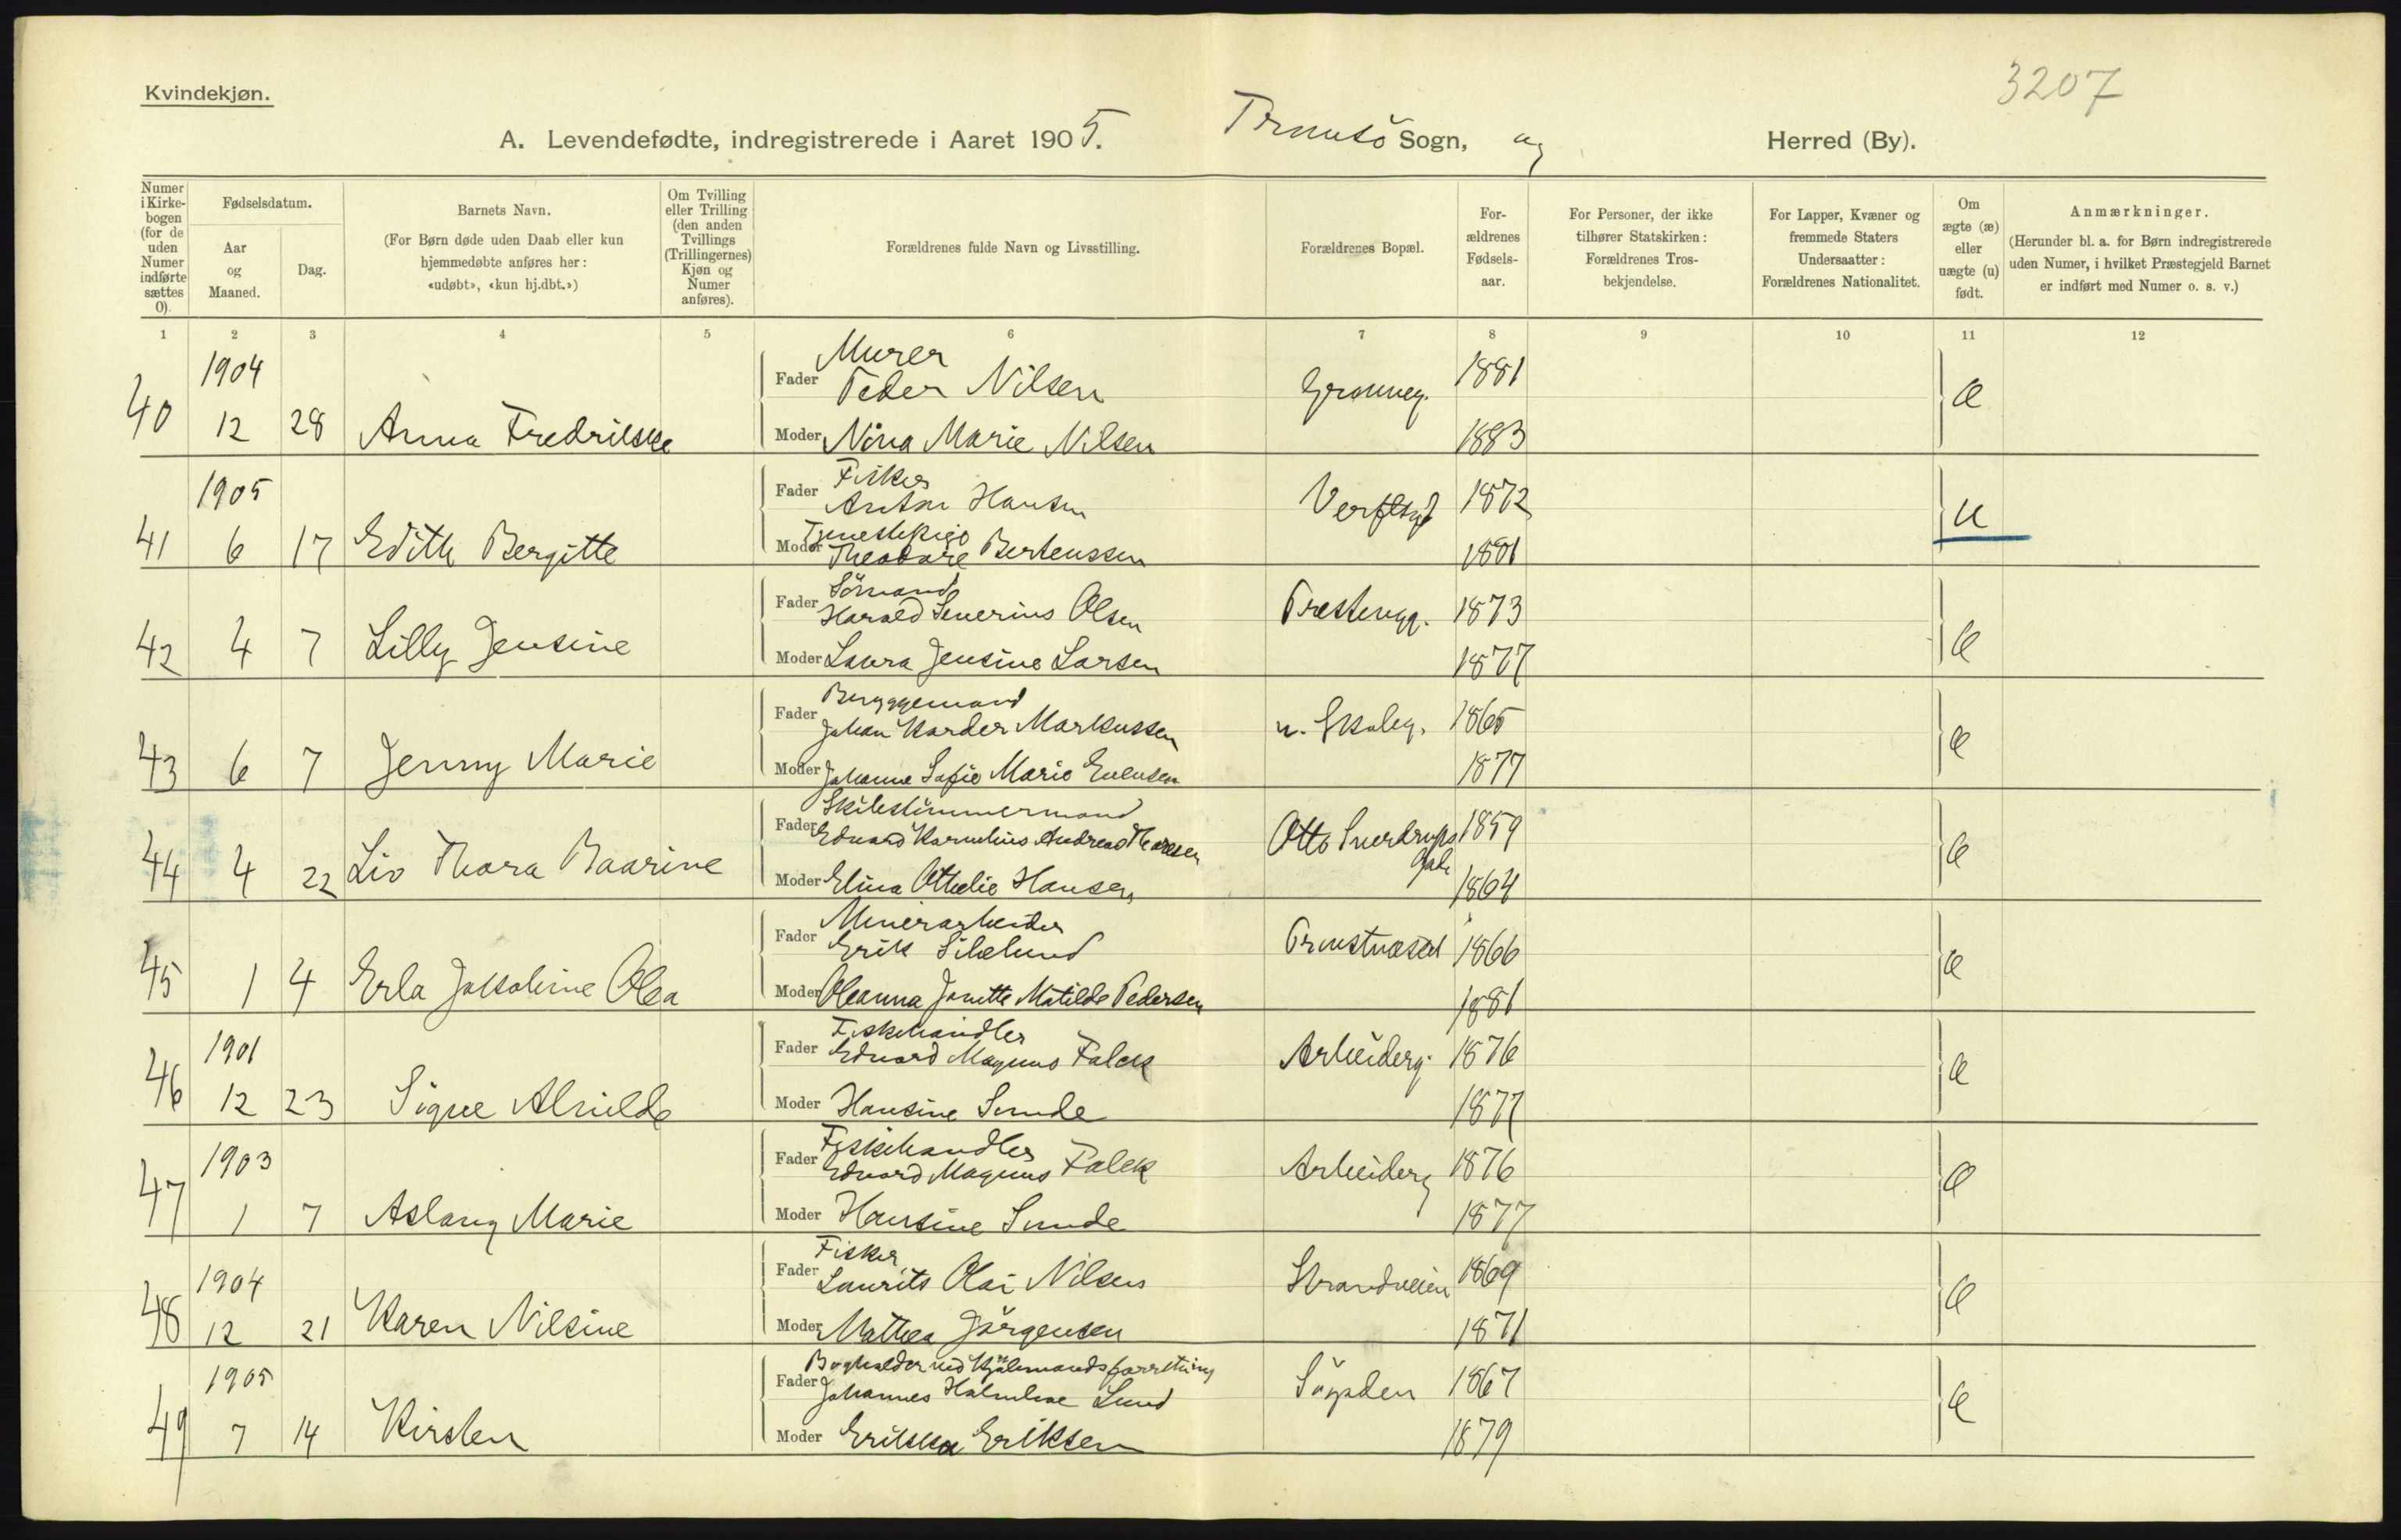 3207
Kvindekjøn.
A. Levendefødte, indregistrerede i Aaret 1905. Tromsö Sogn, og Herred (By).
Numer i Kirke-bogen (for de uden Numer indførte sættes 0).
Fødselsdatum.
Aar og Maaned.
Dag.
Barnets Navn.
(For Børn døde uden Daab eller kun hjemmedøbte anføres her: «udøbt», «kun hj.dbt.»)
Om Tvilling eller Trilling (den anden Tvillings (Trillingernes) Kjøn og Numer anføres).
Forældrenes fulde Navn og Livsstilling.
Forældrenes Bopæl.
For-ældrenes Fødsels-aar.
For Personer, der ikke tilhører Statskirken: Forældrenes Tros-bekjendelse.
For Lapper, Kvæner og fremmede Staters Undersaatter: Forældrenes Nationalitet.
Om ægte (æ) eller uægte (u) født.
Anmærkninger.
(Herunder bl. a. for Børn indregistrerede uden Numer, i hvilket Præstegjeld Barnet er indført med Numer o. s. v.)
1 2 3 4 5 6 7 8 9 10 11 12
1904 Murer
Fader Peder Nilsen Grønneg. 1881 æ
40 12 28 Anna Fredrikke Moder Nina Marie Nilsen 1883
1905 Fisker
Fader Anton Hansen 1872 u
Tjenestepige
41 6 17 Edith Bergitte Moder Theodore Berteussen 1881
Sömand
Fader Harald Severius Olsen 1873 æ
42 4 7 Lilly Jensine Moder Laura Jensine Larsen 1877
Bryggemand
Fader Johan Karder Markussen n. Skoleg. 1865 æ
43 6 7 Jenny Marie Moder Johanne Sofie Marie Evensen 1877
Skibstimmermand
Fader Edvard Kornelius Andreas Thoresen Otto Sverdrups Gade 1859 æ
44 4 22 Liv Thora Baarine Moder Elina Othelie Hansen 1864
Minerarbeider
Fader Erik 1866 æ
45 1 4 Erla Jakobine Olea Moder Oleanna Janette Matilde Pedersen 1881
1901 Fiskehandler
Fader Edvard Magnus Falck Arbeiderg. 1876 æ
46 12 23 Signe Alvilde Moder Hansine Sunde 1877
1903 Fiskehandler
Fader Edvard Magnus Falck Arbeiderg 1876 æ
47 1 7 Aslaug Marie Moder Hansine Sunde 1877
1904 Fisker
Fader Laurits Olai Nilsen Strandveien 1869 æ
48 12 21 Karen Nilsine Moder Mathea Jörgensen 1871
1905 Bogholder ved Kjölmandsforretning
Fader Johannes Holmboe Lund Sögaden 1867 æ
49 7 14 Kirsten Moder Erikka Eriksen 1879